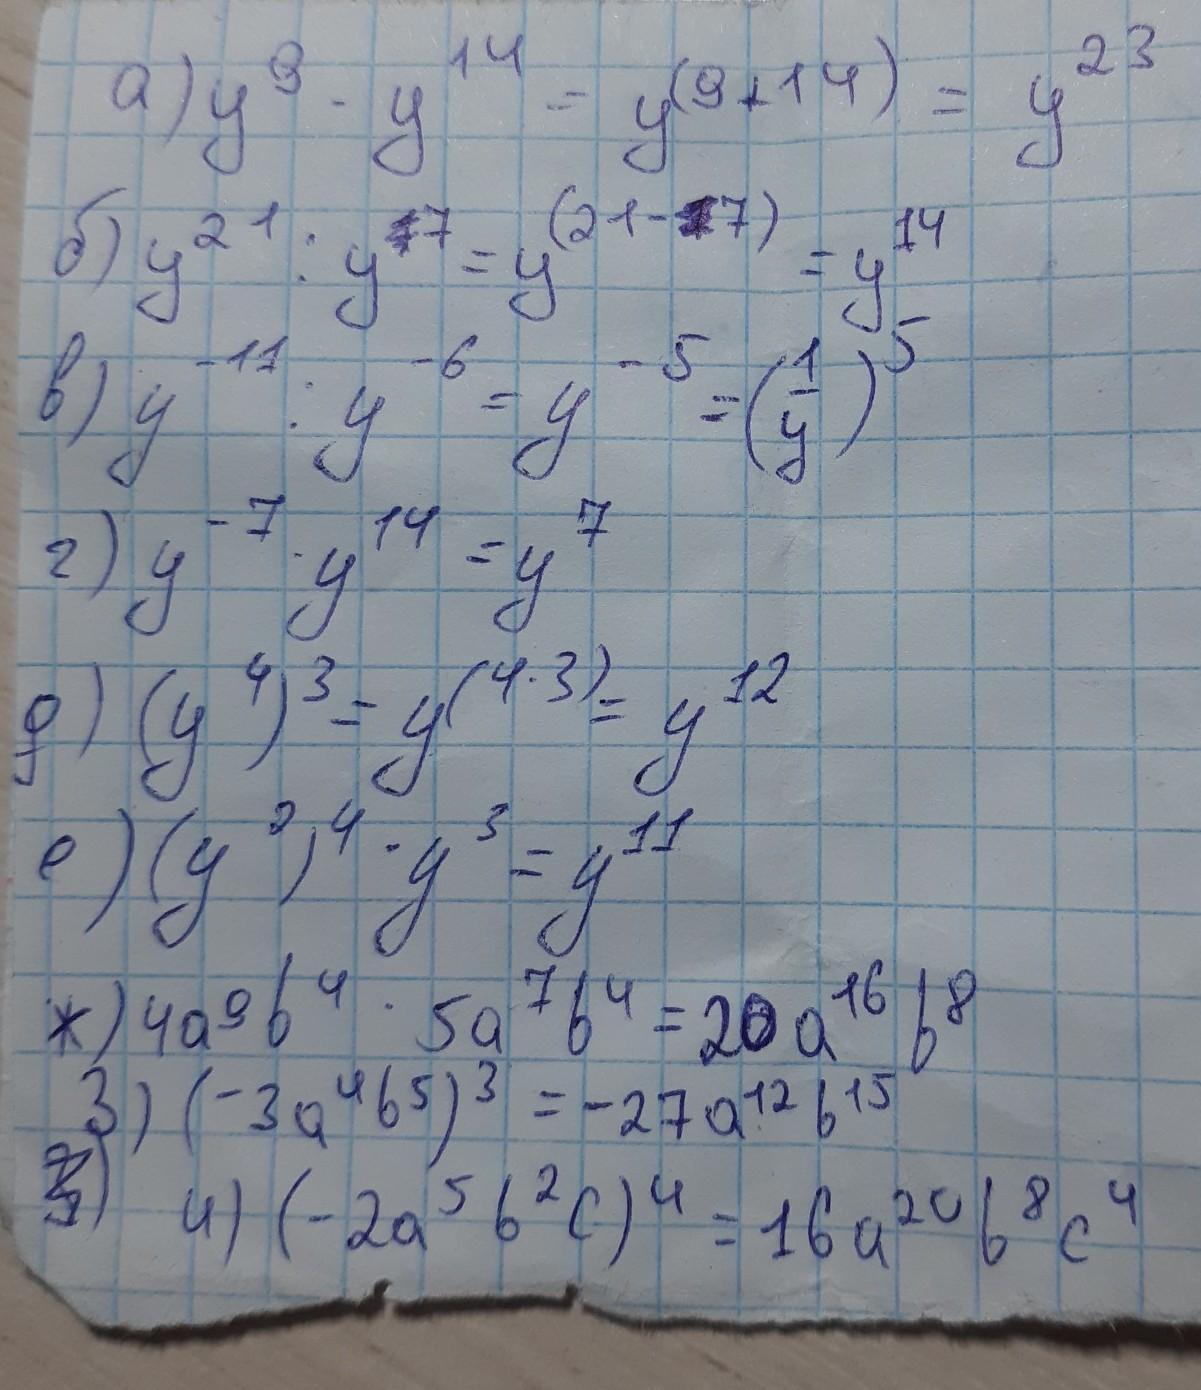 а) y⁹ · y¹⁴ = y⁽⁹⁺¹⁴⁾ = y²³
б) y²¹ : y⁷ = y⁽²¹⁻⁷⁾ = y¹⁴
в) y⁻¹¹ : y⁻⁶ = y⁻⁵ = (1/y)⁵
г) y⁻⁷ · y¹⁴ = y⁷
д) (y⁴)³ = y^(4·3) = y¹²
е) (y²)⁴ · y³ = y¹¹
ж) 4a⁹b⁴ · 5a⁷b⁴ = 20a¹⁶b⁸
з) (-3a⁴b⁵)³ = -27a¹²b¹⁵
и) (-2a⁵b²c)⁴ = 16a²⁰b⁸c⁴